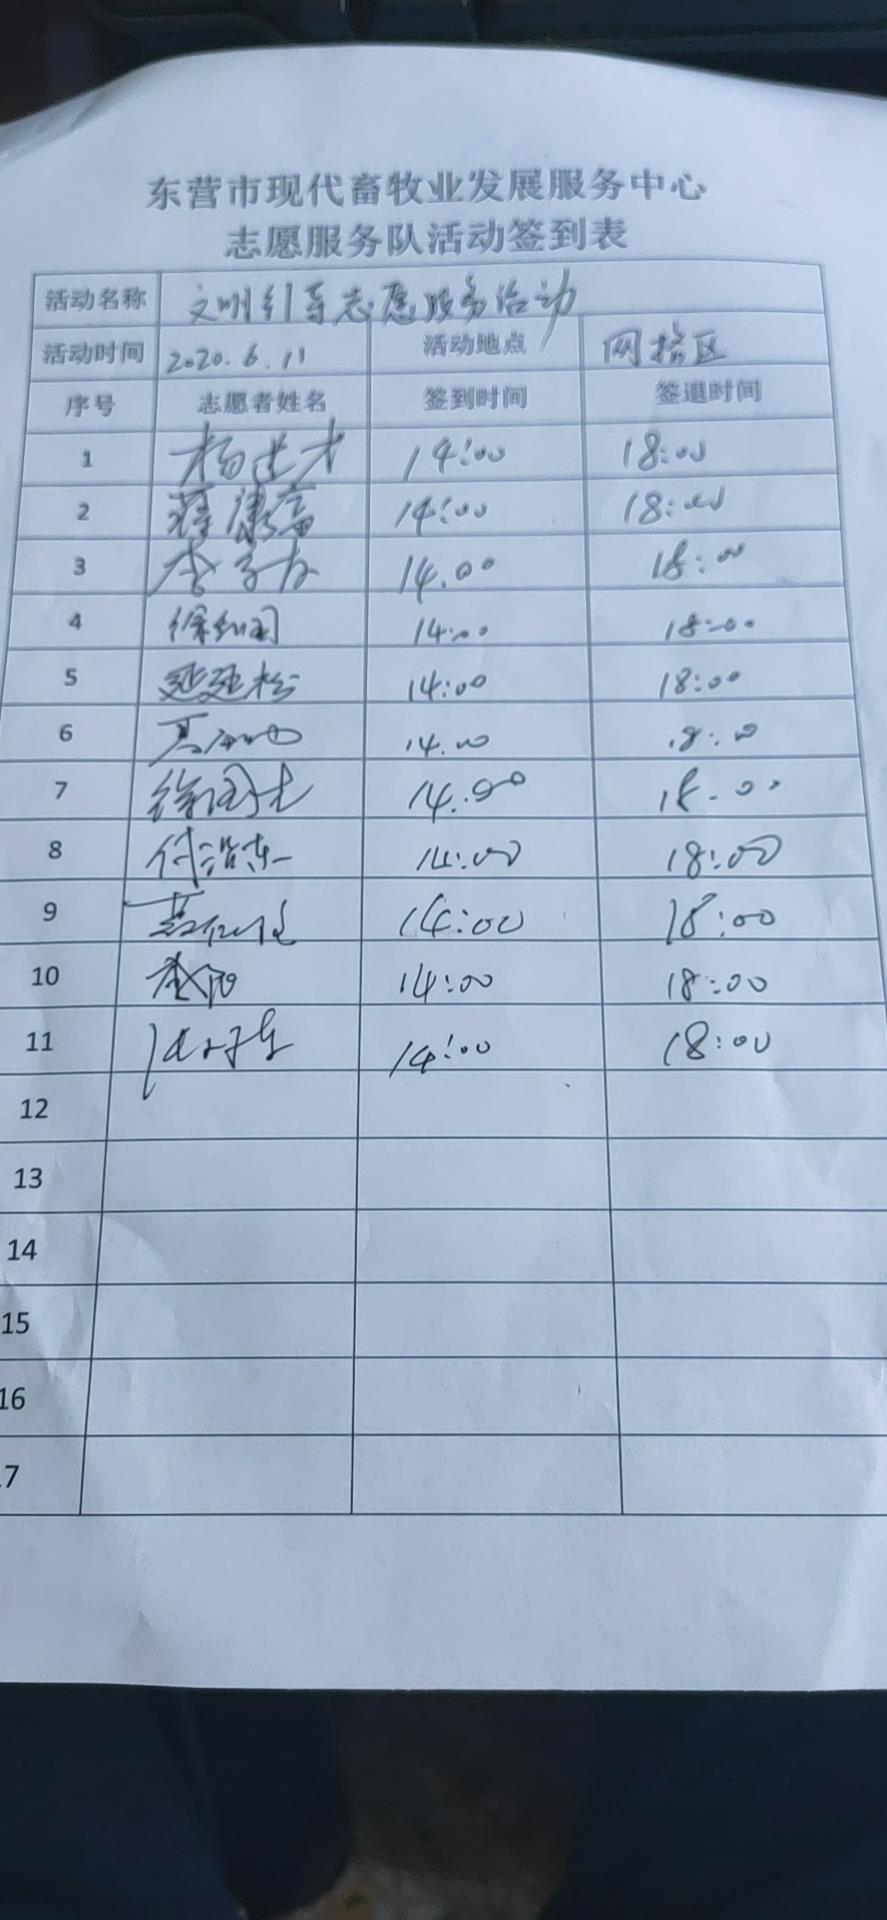 东营市现代畜牧业发展服务中心
志愿服务队活动签到表
活动名称 文明引导志愿服务活动
活动时间 2020.6.11 活动地点 网格区
序号 志愿者姓名 签到时间 签退时间
1 14:00 18:00
2 蒋康富 14:00 18:00
3 14.00 18:00
4 14:00 18:00
5 延廷松 14:00 18:00
6 14.00 18:00
7 14.00 18.00
8 付浩东 14:00 18:00
9 14:00 18:00
10 14:00 18:00
11 14:00 18:00
12
13
14
15
16
17